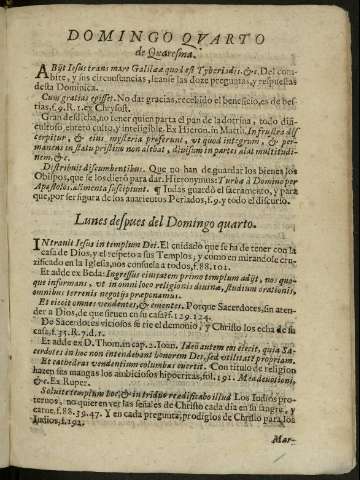 DOMINGO QVARTO
de Quaresma.
ABijt Iesus trans mare Galilææ quod est Tyberiadis. &c. Del com-
bite, y sus circunstancias, leanse las doze preguntas, y respuestas
desta Dominica.
Cum gratias egisset. No dar gracias, recebido el beneficio, es de bes-
tias, f.9. R.1. ex Chrysost.
Gran desdicha, no tener quien parta el pan de la dotrina, todo dis-
cultoso, entero culto, y inteligible. Ex Hieron. in Matth. In frusta dis
cerpitur, & eius mysteria proferunt, vt quod integrum, & per-
manens in statu pristino non alebat, diuisum in partes alat multitudi-
nem. &c.
Distribuit discumbentibus. Que no han de guardar los bienes los
Obispos, que se los dieron para dar. Hieronymus: Turba à Domino per
Apostolos alimenta suscipiunt. ¶ Iudas guardò el sacramento, y para
que, por ser figura de los auarientos Perlados, f.9. y todo el discurso.
Lunes despues del Domingo quarto.
INtrauit Iesus in templum Dei. El cuidado que se ha de tener con la
casa de Dios, y el respeto a sus Templos; y como en mirandose cru-
zificado en la Iglesia, nos consuela a todos, f.88. 102.
Et adde ex Beda: Ingressus ciuitatem primo templum adijt, nos quo-
que informans, vt in omni loco religionis deuota, studium orationis,
omnibus terrenis negotijs preponamus.
Et eiecit omnes vendentes, & ementes. Porque Sacerdotes, sin aten-
der a Dios, de que siruen en su casa? f. 129. 124.
De Sacerdotes viciosos se rie el demonio, y Christo los echa de su
casa, f.35. R.7. d.r.
Et adde ex D. Thom. in cap. 2. Ioan. Ideò autem eos eiecit, quia Sa-
cerdotes in loc non intendebant honorem Dei, sed vtilitatẽ propriam.
Et cathedras vendentium columbas euertit. Con titulo de religion
hazen sus mangas los ambiciosos hipocritas, fol. 191.
&c. Ex Ruper.
Soluite templum hoc, & in triduo reædificabo illud. Los Iudios pro-
teruos, no quieren ver las señales de Christo cada dia en su sangre, y
carne, f.88.39.47. Y en cada pregunta, prodigios de Christo para los
Iudios, f.192.
Mar-